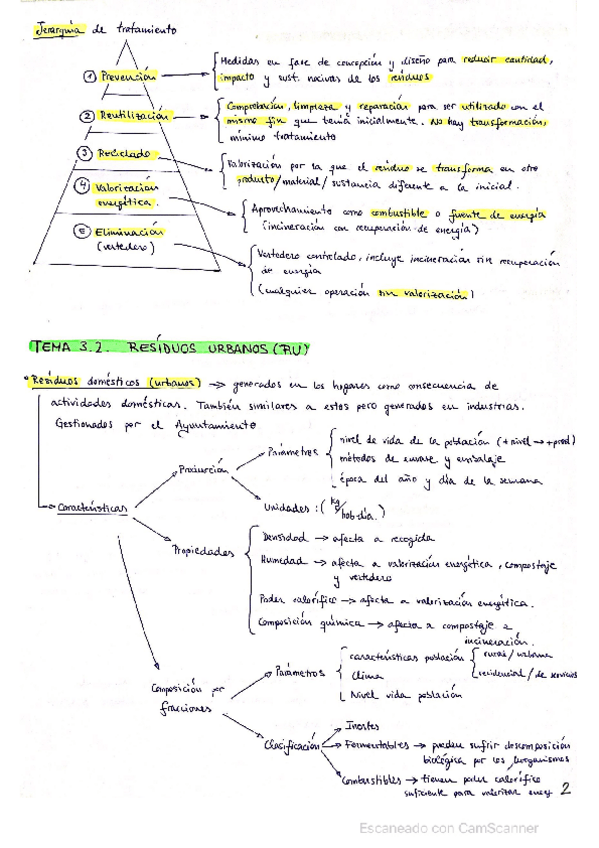 Jerarquía de tratamiento
① Prevención → Medidas en fase de concepción y diseño para reducir cantidad,
impacto y sust. nocivas de los residuos
② Reutilización → Comprobación, limpieza y reparación para ser utilizado con el
mismo fin que tenía inicialmente. No hay transformación,
mínimo tratamiento
③ Reciclado → Valorización por la que el residuo se transforma en otro
producto/material/sustancia diferente a la inicial.
④ Valorización
energética. → Aprovechamiento como combustible o fuente de energía
(incineración con recuperación de energía)
⑤ Eliminación
(vertedero) → Vertedero controlado, incluye incineración sin recuperación
de energía
(cualquier operación sin valorización)
TEMA 3.2. RESÍDUOS URBANOS (RU)
Residuos domésticos (urbanos) → generados en los hogares como consecuencia de
actividades domésticas. También similares a estos pero generados en industrias.
Gestionados por el Ayuntamiento
Características
Producción
Parámetros
nivel de vida de la población (+nivel → +prod)
métodos de envase y embalaje
época del año y día de la semana
Unidades: (kg/hab·día.)
Propiedades
Densidad → afecta a recogida
Humedad → afecta a valorización energética, compostaje
y vertedero
Poder calorífico → afecta a valorización energética.
Composición química → afecta a compostaje e
incineración.
Composición por
fracciones
Parámetros
características población
rural/urbana
residencial/de servicios
Clima
Nivel vida población
Clasificación
Inertes
Fermentables → pueden sufrir descomposición
biológica por los
Combustibles → tienen poder calorífico
suficiente para valorizar energ 2
Escaneado con CamScanner